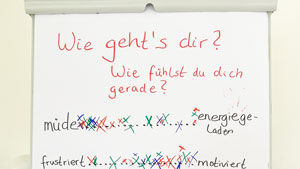 Wie geht's dir?
Wie fühlst du dich
gerade?
müde energiege-
laden
frustriert motiviert